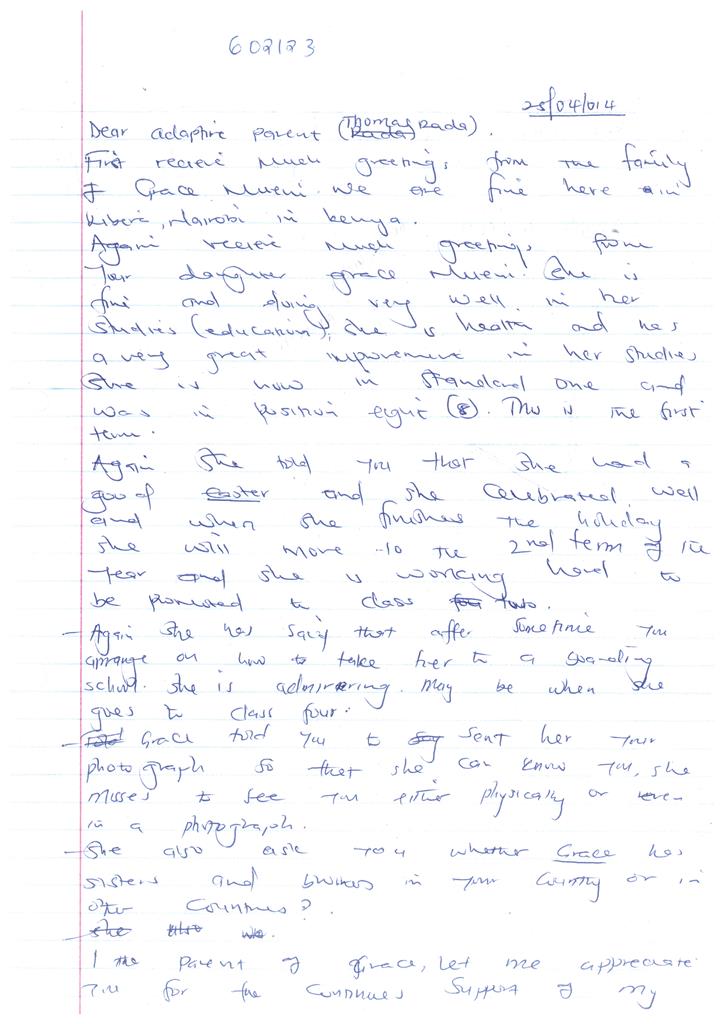 602123
25/04/014
Dear adaptive parent (Thomas Rada).
First recieve much greetings from the family
of Grace Mueni. We are fine here in
Kibera, Nairobi in kenya.
Again recieve much greetings from
your daughter grace Mueni. She is
fine and doing very well in her
studies (education), she is health and has
a very great improvement in her studies
She is now in standard one and
was in position eight (8). This is the first
term.
Again she told you that she had a
good easter and she celebrated well
and when she finishes the holiday
she will move to the 2nd term of the
year and she is working hard to
be promoted to class two.
- Again she has said that after sometime you
arrange on how to take her to a boarding
school. she is admirering. May be when she
goes to class four.
- Grace told you to sent her your
photograph so that she can know you, she
misses to see you either physically or even
in a photograph.
- She also ask you whether Grace has
sisters and brothers in your country or in
other countries?
she also
I the parent of Grace, let me appreciate
you for the continues support of my